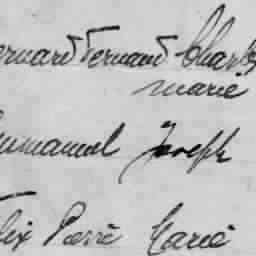 ernard Fernand Charles
marie
mmanuel Joseph
lix Pierre Marie